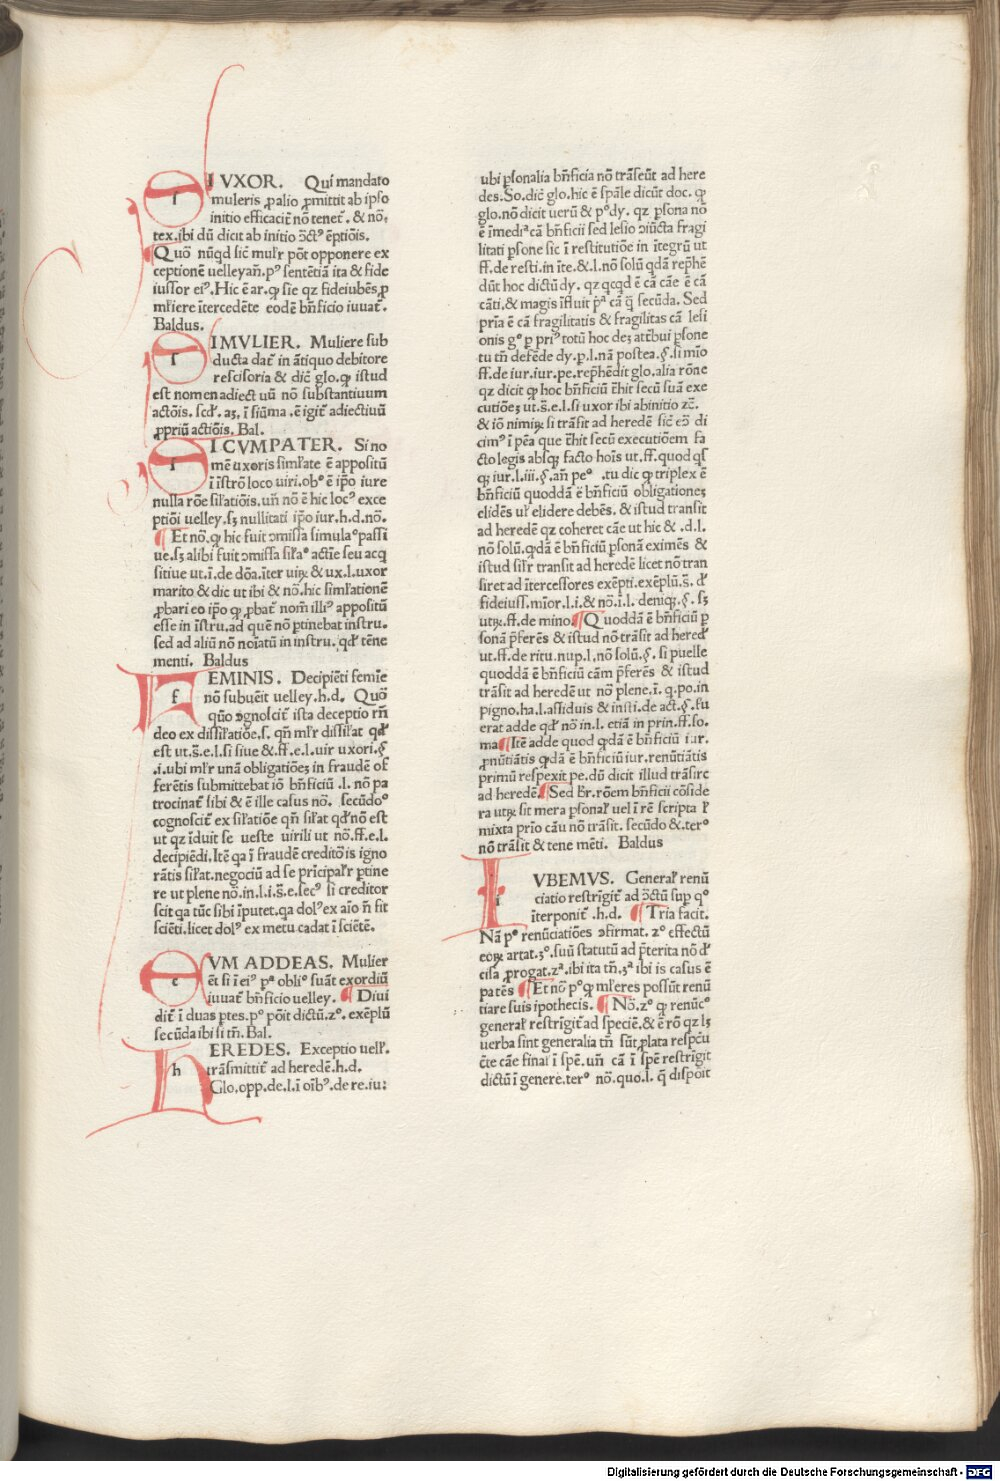 SI VXOR. Qui mandato
muleris ꝓalio ꝓmittit ab ipso
initio efficacit̃ nõ tenet̃. & nõ.
tex.ibi dũ dicit ab initio ɔ̃ctꝰ ẽptiõis.
Quõ nũqd sic̃ mul̃r põt opponere ex
ceptionẽ uelleyañ.pꝰ sentẽtiã ita & fide
iussor eiꝰ. Hic ẽ ar.ꝙ sic qz fideiubẽs ꝓ
ml̃iere ĩtercedẽte eodẽ bñficio iuuat̃.
Baldus.
SI MVLIER. Muliere sub
ducta dat̃ in ãtiquo debitore
rescisoria & dic̃ glo.ꝙ istud
est nomen adiectiuũ nõ substantiuum
actõis. scd̃. aʒ. ĩ sũma .ẽ igit̃ adiectiuũ
ꝓpriũ actiõis. Bal.
SI CVM PATER. Si no
mẽ uxoris siml̃ate ẽ appositũ
ĩ ĩstrõ loco uiri.obꝰ ẽ ip̃o iure
nulla rõe sil̃atiõis.uñ nõ ẽ hic locꝰ exce
ptiõi uelley.sʒ nullitati ip̃o iur.h.d.nõ.
¶ Et nõ.ꝙ hic fuit ɔmissa simulaᵒ passi
ue.sʒ alibi fuit ɔmissa sil̃aᵒ actĩe seu acq
sitiue ut.ĩ.de dõa.ĩter uiꝝ & ux.l.uxor
marito & dic ut ibi & nõ.hic siml̃ationẽ
ꝓbari eo ip̃o ꝙ ꝓbat̃ nom̃ illiꝰ appositũ
esse in ĩstru.ad quẽ nõ ptinebat instru.
sed ad aliũ nõ noĩatũ in instru. qd̃ tẽne
menti. Baldus
FEMINIS. Decipiẽti femĩe
nõ subuẽit uelley.h.d. Quõ
qũo ɔgnoscit̃ ista deceptio rñ
deo ex dissil̃atiõe.s. qñ ml̃r dissil̃at qd̃
est ut.s̃.e.l.si siue & .ff.e.l.uir uxori.§
.i.ubi ml̃r unã obligatiõeʒ in fraudẽ of
ferẽtis submittebat iõ bñficiũ .l. nõ pa
trocinat̃ sibi & ẽ ille casus nõ. secũdoᵒ
cognoscit̃ ex sil̃atiõe qñ sil̃at qd̃ nõ est
ut qz ĩduit se ueste uirili ut nõ.ff.e.l.
decipiẽdi. Itẽ qa ĩ fraudẽ creditõis igno
rãtis sil̃at.negociũ ad se prĩcipal̃r ptine
re ut plene nõ.in.l.i.s̃.e.secꝰ si creditor
scit qa tũc sibi ĩputet.qa dolꝰ ex aĩo ñ fit
sciẽti.licet dolꝰ ex metu cadat ĩ sciẽtẽ.
CVM ADDEAS. Mulier
ẽt si ĩ eiꝰ pᵃ obliᵒ suãt exordiũ
iuuat̃ bñficio uelley. ¶ Diui
dit̃ ĩ duas ptes.pᵒ põit dictũ.zᵒ. exẽplũ
secũda ibi si tm̃. Bal.
HEREDES. Exceptio uell̃.
trãsmittit̃ ad heredẽ.h.d.
Glo.opp.de.l.ĩ oĩbꝰ.de re.iu:
ubi psonalia bñficia nõ trãseũt ad here
des.So.dic̃ glo.hic ẽ sp̃ale dicũt doc. ꝙ
glo.nõ dicit uerũ & pᵒ dy. qz psona nõ
ẽ ĩmediᵃ cã bñficii sed lesio ɔiũcta fragi
litati psone sic ĩ restitutiõe in ĩtegrũ ut
ff.de resti.in ĩte.& .l.nõ solũ qdã rephẽ
dũt hoc dictũ dy. qz qcqd ẽ cã cãe ẽ cã
cãti.& magis ĩfluit p̃ᵃ cã q̃ secũda. Sed
pria ẽ cã fragilitatis & fragilitas cã lesi
onis gᵒ p priꝰ totũ hoc deʒ attr̃bui psone
tu tñ defẽde dy.p.l.nã postea.§.si mĩo
ff.de iur.iur.pe.rephẽdit glo.alia rõne
qz dicit ꝙ hoc bñficiũ t̃hit secũ suã exe
cutiõeʒ ut.s̃.e.l.si uxor ibi ab initio ꝛc̃.
& iõ nimiꝝ si trãsit ad heredẽ sic̃ eõ di
cimꝰ ĩ pẽa que t̃hit secũ executiõem fa
cto legis absqʒ facto hoĩs ut.ff.quod qs̃
qʒ iur.l.iii.§.añ peᵒ .tu dic ꝙ triplex ẽ
bñficiũ quoddã ẽ bñficiũ obligationeʒ
elidẽs ul̃ elidere debẽs. & istud transit
ad heredẽ qz coheret cãe ut hic & .d.l.
nõ solũ.qdã ẽ bñficiũ psonã eximẽs &
istud sil̃r transit ad heredẽ licet nõ tran
siret ad ĩtercessores exẽpti.exẽplũ.s̃. d̃
fideiuss.mĩor.l.i.& nõ.ĩ.l. deniqʒ.§. sʒ
utꝝ.ff.de mino. ¶ Quoddã ẽ bñficiũ p
sonã p̃ferẽs & istud nõ trãsit ad hered̃
ut.ff.de ritu.nup.l.nõ solũ.§. si puelle
quoddã ẽ bñficiũ cãm p̃ferẽs & istud
trãsit ad heredẽ ut nõ plene.ĩ. q.po.in
pigno.ha.l.assiduis & insti.de act.§.fu
erat adde qd̃ nõ in.l. etiã in prin.ff.so.
ma ¶ Itẽ adde quod qdã ẽ bñficiũ iur.
ꝓnũtiãtis qdã ẽ bñficiũ iur.renũtiãtis
primũ respexit pe.dũ dicit illud trãsire
ad heredẽ. ¶ Sed Br.rõem bñficii cõside
ra utꝝ sit mera psonal̃ uel ĩ rẽ scripta l̃
mixta prio cãu nõ trãsit. secũdo & .terᵒ
nõ trãsit & tene mẽti. Baldus
IVBEMVS. General̃ renũ
ciatio restrĩgit̃ ad ɔ̃ctũ sup qᵒ
ĩterponit̃ .h.d. ¶ Tria facit.
Nã pᵒ renũciatiões ɔfirmat. zᵒ effectũ
eoꝝ artat.3ᵒ.suũ statutũ ad p̃terita nõ d̃
cisa ꝓrogat.zᵃ.ibi ita tm̃.3ᵃ ibi is casus ẽ
patẽs ¶ Et nõ pᵒ ꝙ ml̃eres possũt renũ
tiare suis ipothecis. ¶ Nõ.zᵒ ꝙ renũcᵒ
general̃ restrĩgit̃ ad speciẽ.& ẽ rõ qz lʒ
uerba sint generalia tm̃ sũt ꝓlata respc̃u
c̃te cãe finai ĩ spẽ.uñ cã ĩ spẽ restrĩgit
dictũ ĩ genere.terᵒ nõ.quo.l. q̃ dispõit
Digitalisierung gefördert durch die Deutsche Forschungsgemeinschaft - DFG